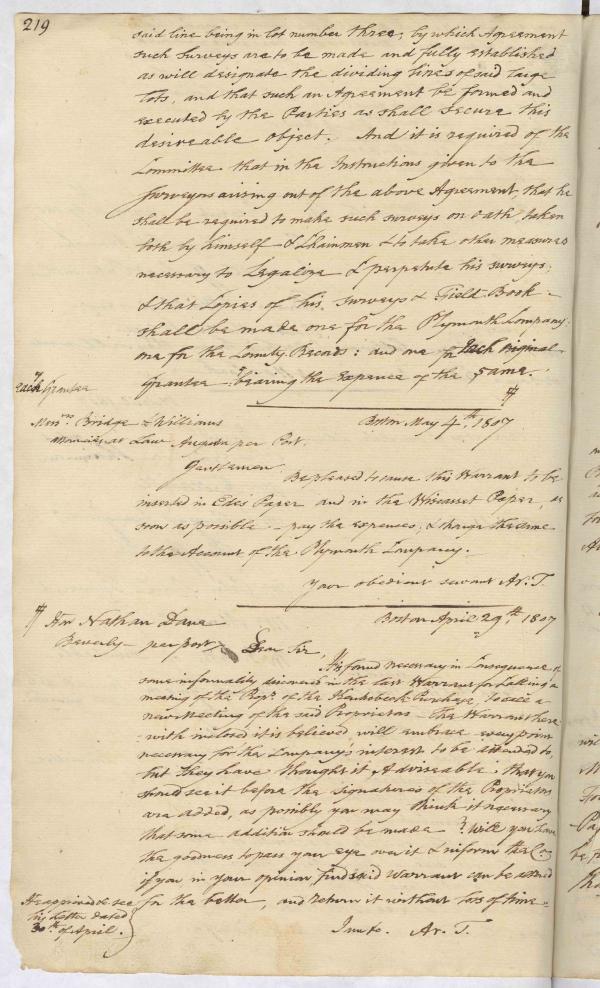 219
said line being in lot number three, by which Agreement
such surveys are to be made and fully established
as will designate the dividing lines of said large
lots, and that such an Agreement be formed and
executed by the Parties as shall secure this
desireable object. And it is required of the
Committee that in the Instructions given to the
Surveyors arising out of the above Agreement, that he
shall be required to make such surveys on oath taken
both by himself & Chainmen & to take other measures
necessary to Legalize & perpetute his surveys;
& that Copies of his surveys & Field Book
shall be made one for the Plymouth Company
one for the County Records: and one for Each Original
Grantee - bearing the Expence of the same.
Each Grantee
Messrs Bridge & Williams
Attornies at Law Augusta per Post.
Boston May 4th 1807
Gentlemen
Be pleased to cause this Warrant to be
inserted in Edes Paper and in the Wiscasset Paper, as
soon as possible - pay the expences, & charge the same
to the Account of the Plymouth Company.
Your obedient servant Ar. T.
Hon Nathan Dane
Beverly - per post
Boston April 29th 1807
Dear Sir,
It is found necessary in Consequence of
some informality discovered in the last Warrant for Calling a
meeting of the Proprs of the Kennebeck Purchase, to call a
new Meeting of the said Proprietors - The Warrant here
with inclosed it is believed will embrace every point
necessary for the Company's interest to be attended to,
but they have thought it Adviseable that you
should see it before the signatures of the Proprietors
are added, as possibly you may think it necessary
that some addition should be made ? Will you have
the goodness to pass your eye over it & inform the Co
if you in your opinion find said Warrant can be altered
for the better, and return it without loss of time.
He approved see
his Letter dated
30th of April.
Ar. T.